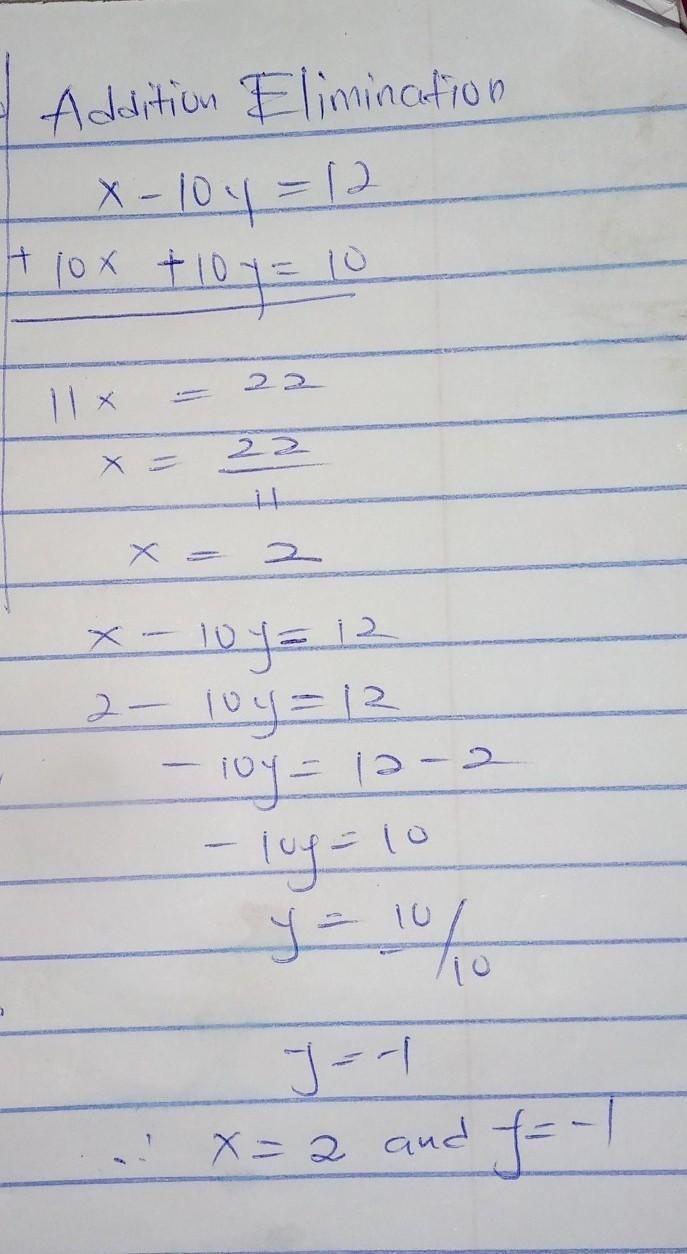 Addition Elimination
x - 10y = 12
+ 10x + 10y = 10
11x = 22
x = 22
11
x = 2
x - 10y = 12
2 - 10y = 12
- 10y = 12 - 2
- 10y = 10
y = 10/-10
y = -1
∴ x = 2 and y = -1